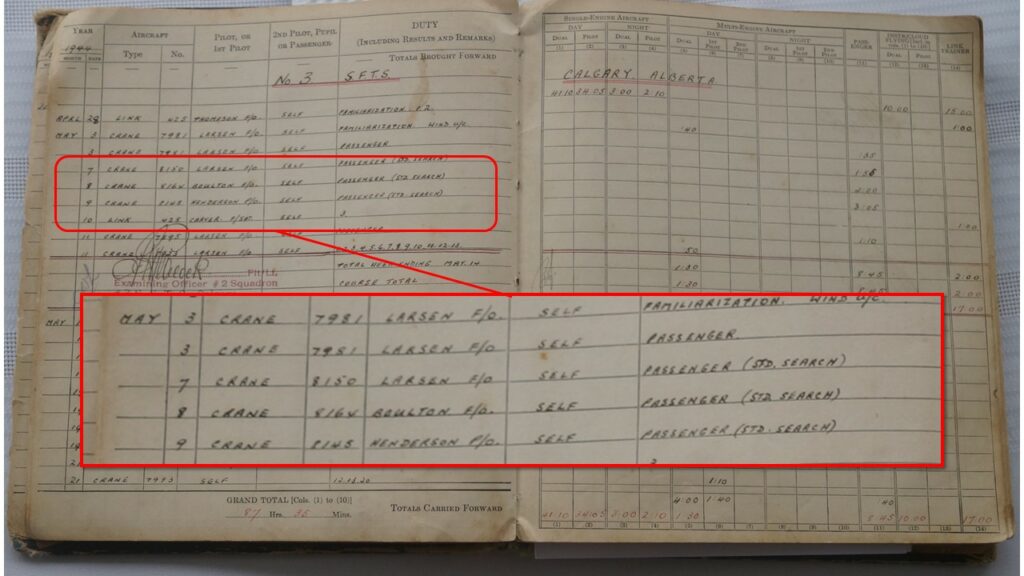 YEAR
1944
MONTH DATE
AIRCRAFT
Type No.
PILOT, OR
1ST PILOT
2ND PILOT, PUPIL
OR PASSENGER
DUTY
(INCLUDING RESULTS AND REMARKS)
TOTALS BROUGHT FORWARD
No. 3 S.F.T.S.
APRIL 28 LINK 425 THOMPSON F/O. SELF FAMILIARIZATION.
MAY 3 CRANE 7981 LARSEN F/O. SELF FAMILIARIZATION. WIND U/C.
3 CRANE 7981 LARSEN F/O SELF PASSENGER
7 CRANE 8150 LARSEN F/O SELF PASSENGER (STD. SEARCH)
8 CRANE 8164 BOULTON F/O. SELF PASSENGER (STD SEARCH)
9 CRANE 8145 HENDERSON P/O. SELF PASSENGER (STD. SEARCH)
10 LINK 425 CARVER F/SGT. SELF 3.
11 CRANE LARSEN F/O SELF
11 CRANE LARSEN F/O SELF 2,3,4,5,6,7,8,9,10,11,12,13.
TOTAL WEEK ENDING MAY. 14
Flt/Lt.
Examining Officer # 2 Squadron
COURSE TOTAL
MAY
21 CRANE 7993 SELF
GRAND TOTAL [Cols. (1) to (10)]
87 Hrs. 35 Mins.
TOTALS CARRIED FORWARD
SINGLE-ENGINE AIRCRAFT
DAY NIGHT
DUAL PILOT DUAL PILOT
(1) (2) (3) (4)
MULTI-ENGINE AIRCRAFT
DAY NIGHT
DUAL 1ST PILOT 2ND PILOT DUAL 1ST PILOT 2ND PILOT
(5) (6) (7) (8) (9) (10)
PASSENGER
(11)
INSTR/CLOUD
FLYING [Incl. in
cols. (1) to (10)]
DUAL PILOT
(12) (13)
LINK
TRAINER
(14)
CALGARY ALBERTA
41:10 34:05 3:00 2:10
10:00 15:00
:40 1:00
:35
1:55
2:00
3:05
1:00
1:10
:50
1:30 8:45 2:00
1:30 8:45 2:00
17:00
MAY 3 CRANE 7981 LARSEN F/O. SELF FAMILIARIZATION. WIND U/C.
3 CRANE 7981 LARSEN F/O SELF PASSENGER.
7 CRANE 8150 LARSEN F/O SELF PASSENGER (STD. SEARCH)
8 CRANE 8164 BOULTON F/O. SELF PASSENGER (STD SEARCH)
9 CRANE 8145 HENDERSON P/O. SELF PASSENGER (STD. SEARCH)
1:10
4:00 1:40 :40
41:10 34:05 3:00 2:10 1:30 8:45 10:00 17:00
(1) (2) (3) (4) (5) (6) (7) (8) (9) (10) (11) (12) (13) (14)